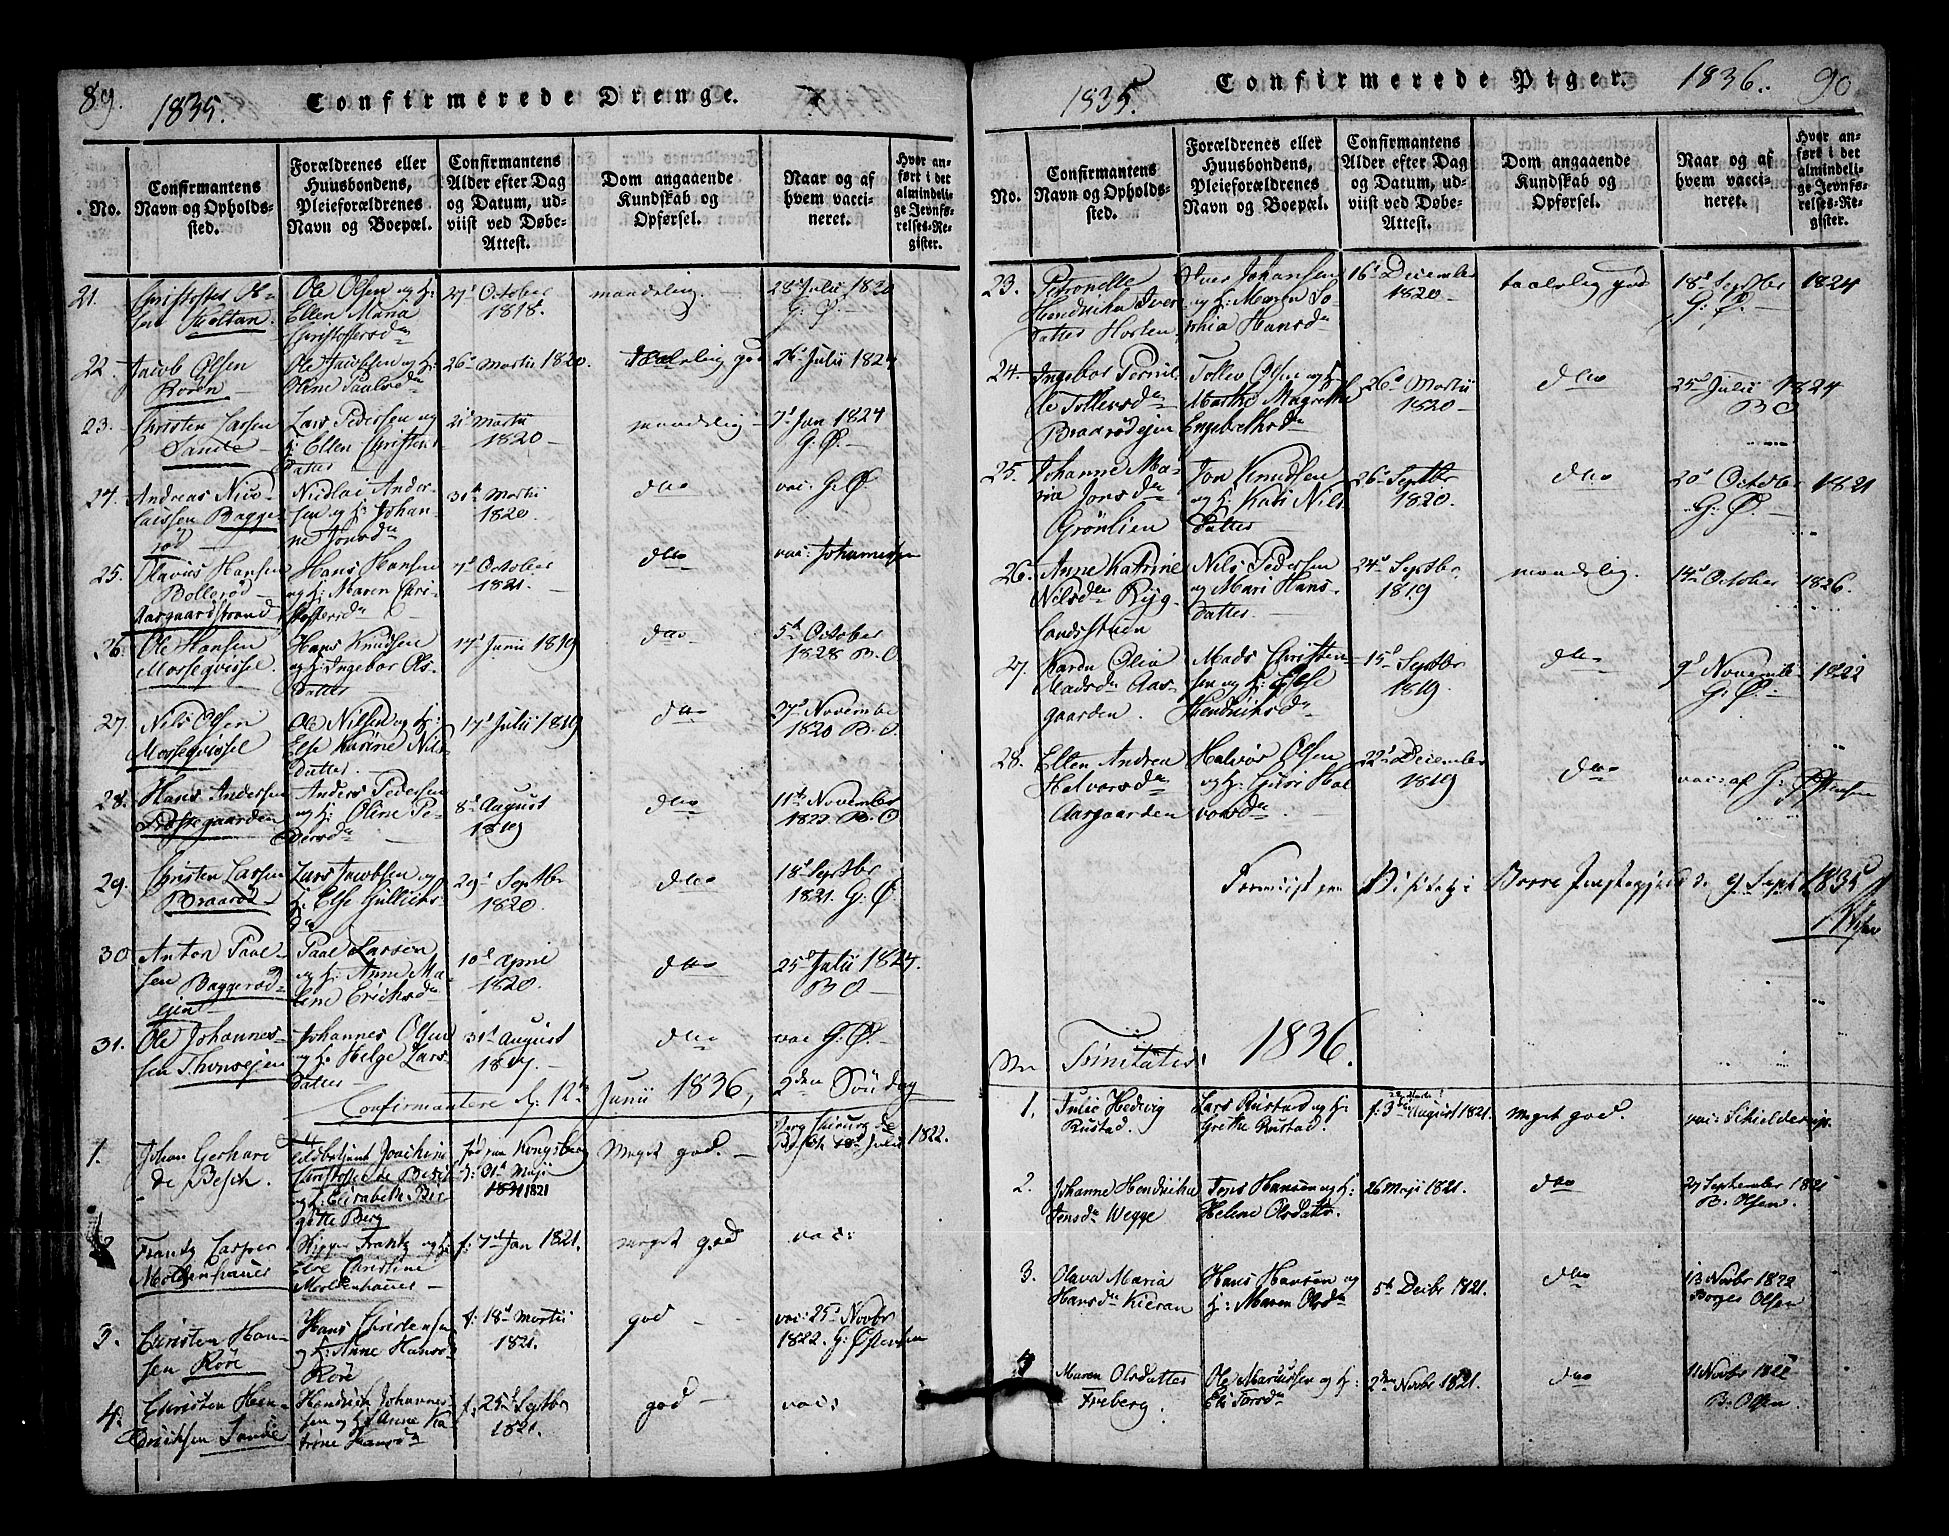 89. 1835. Confirmerede Drenge.
No.
Confirmantens Navn og Opholds-sted.
Forældrenes eller Huusbondens, Pleieforældrenes Navn og Boepæl.
Confirmantens Alder efter Dag og Datum, ud-viist ved Døbe-Attest.
Dom angaaende Kundskab og Opførsel.
Naar og af hvem vacci-neret.
Hvor an-ført i det almindeli-ge Jevnfø-relses-Re-gister.
21. Christoffer Ol-
sen
Ole Olsen og H:
Ellen Maria
Christoffersda
27d October
1818.
maadelig.
28d Julii 1820
G: Ø.
22. Jacob Olsen
Røren
Ole Jacobsen og H:
Oline Paalsda
26d Martii 1820.
taalelig god
26d Julii 1824
23. Christen Larsen
Sande
Lars Pedersen og
H: Ellen Christens
Datter
21d Martii
1820
maadelig
7d Jan 1824
G: Ø.
24. Andreas Nico-
laissen Bagge-
rød
Nicolai Ander-
sen og H: Johan-
ne Jonsda
31d Martii
1820.
do
vac: G: Ø.
25. Olavus Hansen
Bollerød
Aasgaardstrand
Hans Hansen
og H: Maren Chri-
stoffersda
7d October
1821.
do
vac: Johannessen
26. Ole Hansen
Mosseqvissel.
Hans Knudsen
og H: Ingebor Ols-
Datter
17d Junii 1819
do
5te October
1828 B. O
27. Nils Olsen
Mosseqvissel
Ole Nilsen og H:
Else Karine Nils
Datter.
17d Julii 1819
do
27d Novembr
1820 B. O.
28. Hans Andersen
Præstegaarden
Anders Pedersen
og H: Oline Pe-
dersda
8d August
1819
do
11te November
1822. B. O
29. Christen Larsen
Braarød
Lars Jacobsen og
H: Else Gulliks-
da
29d Septbr
1820.
do
18d Septbr
1821. G: Ø.
30. Anton Paal-
sen Baggerød-
ejen
Paal Larsen
og H: Anne Ma-
lene Eriksda
10d April
1820.
do
25d Julii 1824.
B O
31. Ole Johannes-
sen Thonsejen
Johannes Olsen
og H: Helge Lars-
Datter
31d August
1819.
do
vac G: Ø.
Confirmantere d: 12te Junii 1836, 2den Søndag
1. Johan Gerhar-
de Besch.
Joachim
Christoffer de Besch
og H: Elisabeth Bir-
gitte Berg
fød paa Kongsberg
d: 31d Maji
1821
Meget god.
Berg
18d Julii 1822.
2 Frantz Casper
Moldenhauer
Skipper Frantz og H:
Else Christine
Moldenhauer
f: 7d Jan 1821.
meget god
vac:
3. Christen Han-
sen Røre
Hans Christensen
og H: Anne Hansd
Røre
f: 18d Martii
1821.
god
vac: 25d Novbr
1822. G: Østensen
4. Christen Hen-
driksen Sande
Hendrich Johannes-
sen og H: Anne Ka-
trine Hansda
f: 25d Septbr
1821.
god
vac:
1835. Confirmerede Piger. 1836. 90
No.
Confirmantens Navn og Opholds-sted.
Forældrenes eller Huusbondens, Pleieforældrenes Navn og Boepæl.
Confirmantens Alder efter Dag og Datum, ud-viist ved Døbe-Attest.
Dom angaaende Kundskab og Opførsel.
Naar og af hvem vacci-neret.
Hvor an-ført i det almindeli-ge Jevnfø-relses-Re-gister.
23. Petronelle
Hendrika Iver
Datter Horten
Iver Johansen
og H: Maren So-
phia Hansda
16d December
1820
taalelig god
18d Septbr 1824
G: Ø.
24. Ingebor Pernil-
le Tollevsda
Braarødejen
Tollev Olsen og H:
Marthe Magrethe
Engebrethsda
26d Martii
1820
do
25d Julii 1824
B O
25. Johanne Ma-
ria Jonsda
Grønlien
Jon Knudsen
og H: Kari Nils
Datter
26d Septbr
1820.
do
20d October 1821
G: Ø.
26. Anne Katrine
Nilsda Ryg-
landsstuen
Nils Pedersen
og Mari Hans-
Datter
24d Septbr
1819
maadelig.
14d October 1826.
27. Karen Olia
Madsda Aas-
gaarden.
Mads Christen-
sen og H: Else
Hendriksda
15d Septbr
1819.
do
9d Novembr 1822
G: Ø.
28. Ellen Andrea
Halvorsda
Aasgaarden
Halvor Olsen
og H: Guri Hal-
vorsda
22d December
1819
do
vac: af G: Østensen
Foreviist paa Visitatz i Borre Præstegjeld d. 9 Sept 1835
No Trinitatis: 1836.
1. Julie Hedvig
Rustad.
Lars Rustad og H:
Grethe Rustad.
f: 3d August 1821.
meget god.
vac: Schielderup.
2. Johanne Hendrikke
Jensda Wegge
Jens Hansen og H:
Helene Olsdattr.
26 Maji 1821.
do
27 September 1821
B: Olsen.
3. Olava Maria
Hansda Kieran
Hans Hansen og
H: Maren Olsda
5te Decbr 1821.
do
13 Novbr 1822
Borger Olsen
4 Maren Olsdatter
Freberg.
Ole Mariussen og H:
2den Novbr 1821.
do
11 Novbr 1822
B: Olsen